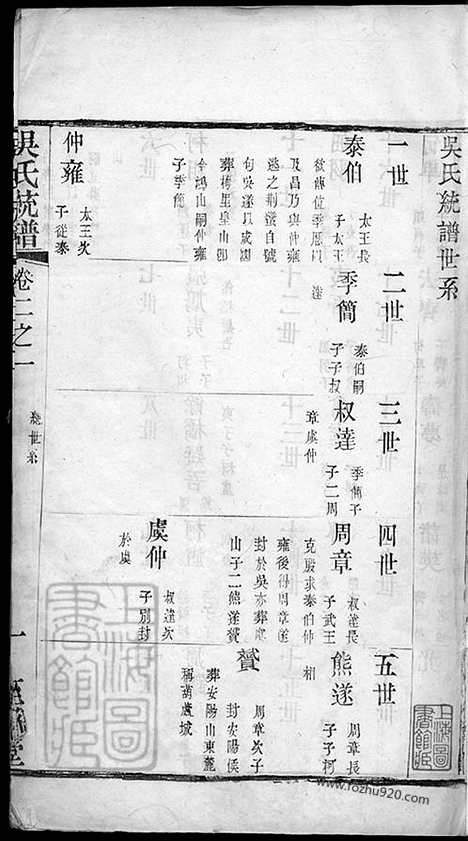 吳氏統譜世系
一世
二世
三世
四世
五世
泰伯
太王長
子太王
欲傳位季歷以
及昌乃與仲雍
逃之荆蠻自號
句吳遂以成国
葬梅里皇山卽
今鴻山嗣仲雍
子季簡
季簡
泰伯嗣
子子叔
達
叔達
季簡子
子二周
章虞仲
周章
叔達長
子武王
克殷求泰伯仲
雍後得周章遂
封於吳亦葬
山子二熊遂贇
熊遂
周章長
子子柯
相
贇
周章次子
封安陽侯
葬安陽山東麓
稱葫蘆城
仲雍
太王次
子從泰
虞仲
叔達次
子別封
於虞
吳氏統譜
卷二之一
統世系
一
至德堂
上海圖書館藏
上海圖書館藏
www.fozhu920.com